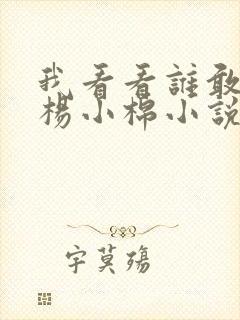 我看看誰敢
楊小棉小說
字莫殤